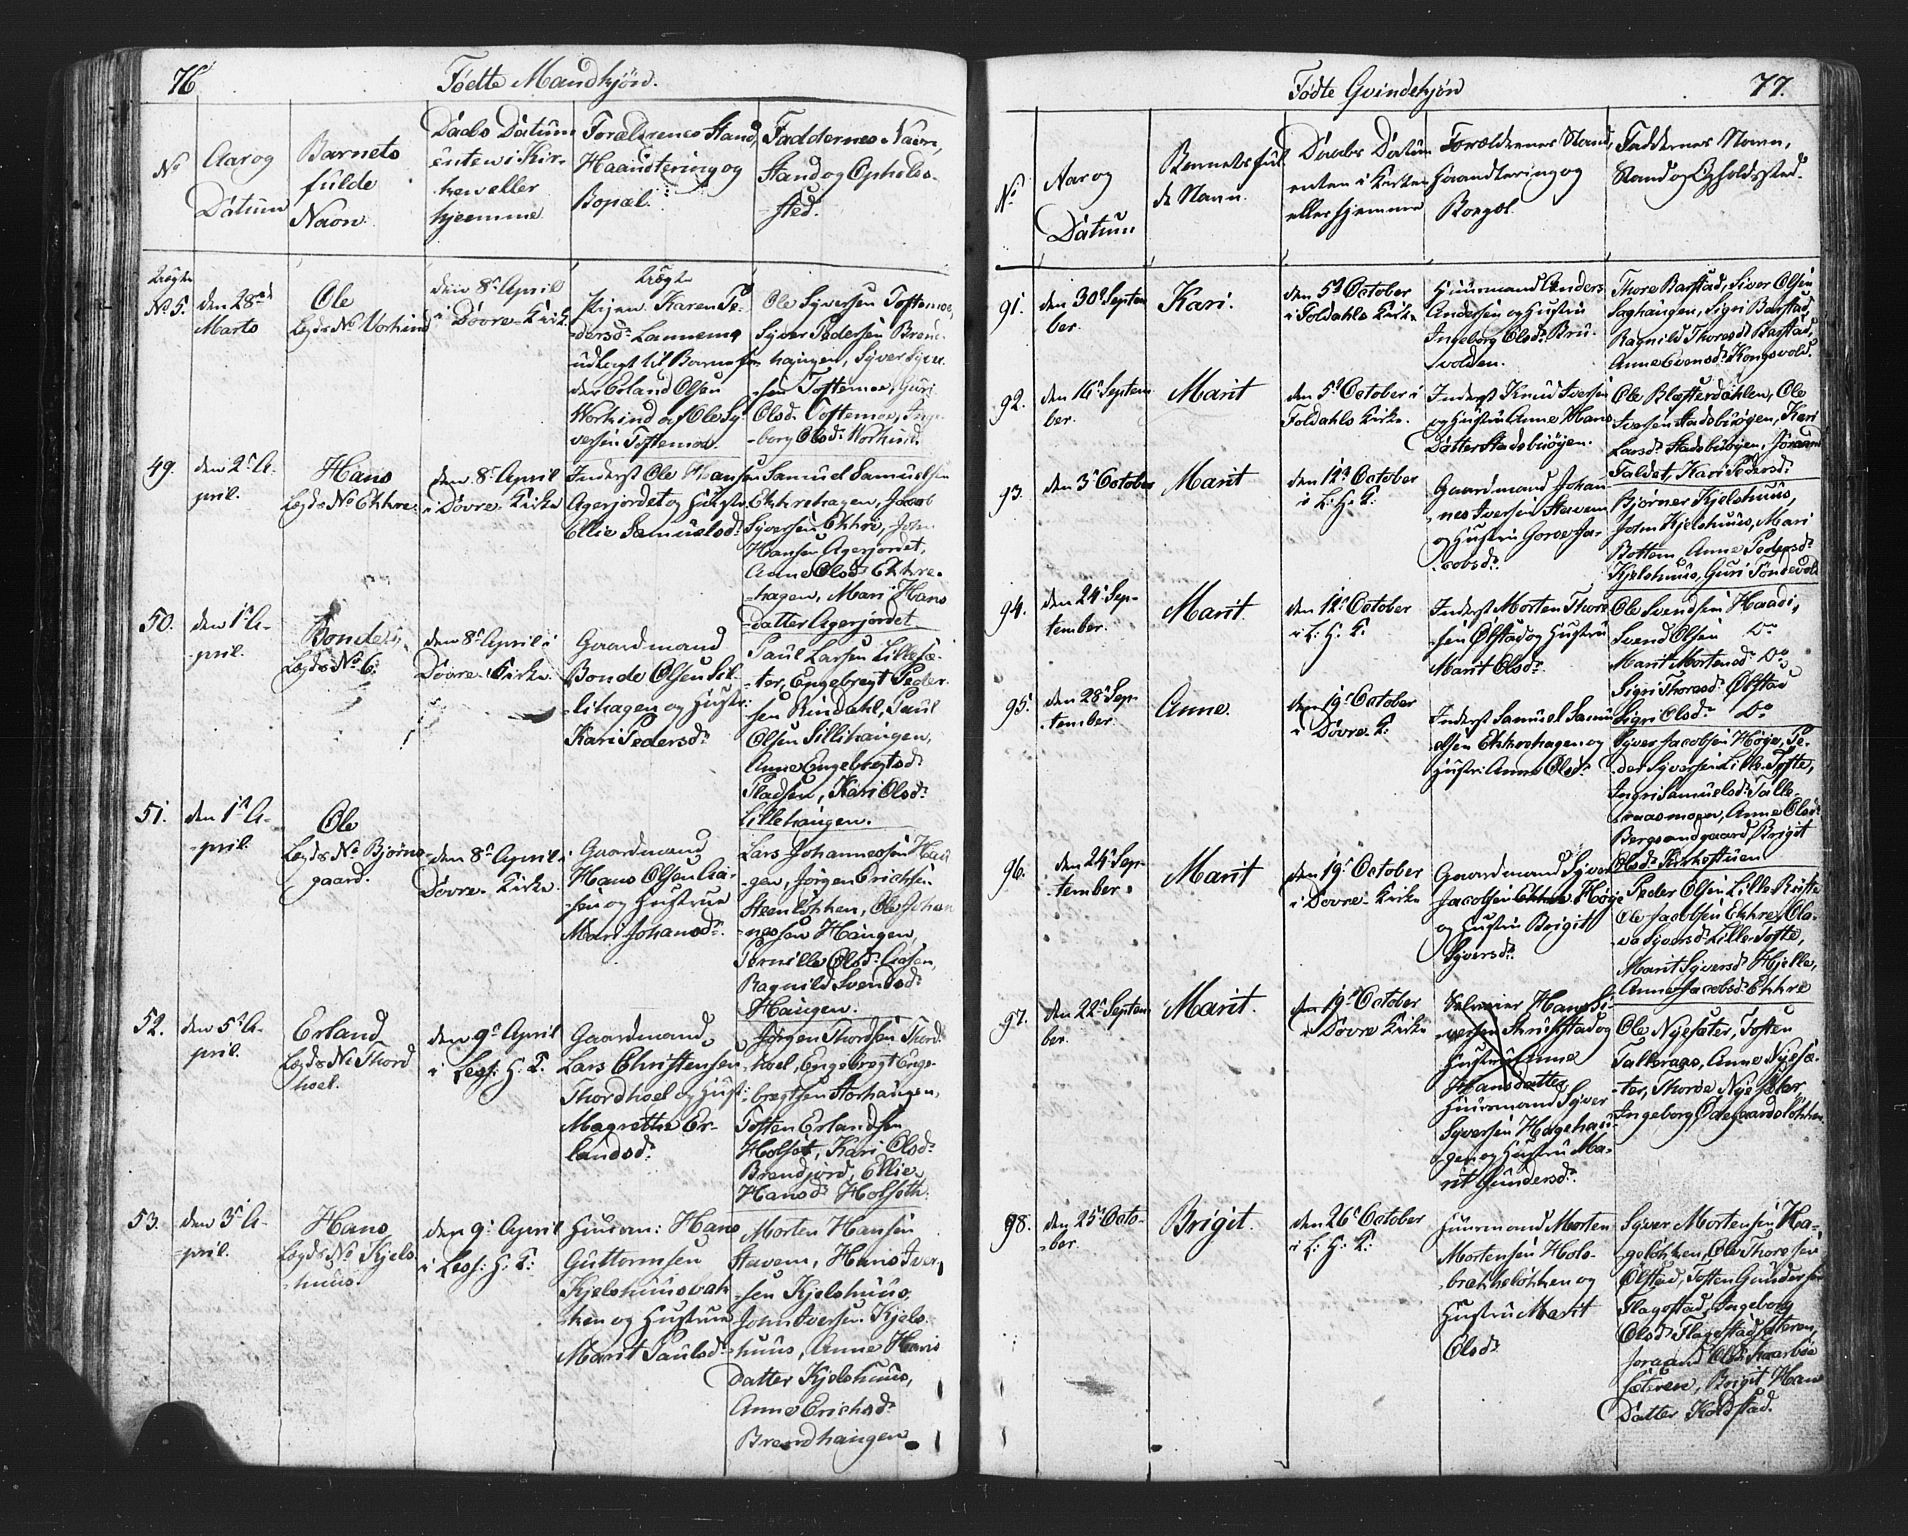 76
Fødte Mandkjön.
No
Aar og
Datum
Barnets
fulde
Navn
Daabs Datum
enten i Kir-
ken eller
hjemme
Forældrenes Stand,
Haandtering og
Bopæl.
Faddernes Navn,
Stand og Opholds-
sted.
Uægte
No 5.
den 28de
Marts
Ole
Lægds No Vorkind
den 8de April
i Dovre Kirk.
Uægte
Pigen Karen Pe-
dersd.
udlagt til Barnefa-
der Erland Olsen
Vorkind af Ole Sy-
versen Toftemoe
Ole Syversen Toftemoe,
Syver Pedersen
haugen, Syver Syver-
sen Toftemoe, Guri
Olsd. Toftemoe, Inge-
borg Olsd. Vorkind
49.
den 2d A-
pril.
Hans
Lægds No Ekkre.
den 8d April
i Dovre Kirke
Inderst Ole Hansen
Agerjordet og Hustru
Ellie Samuelsd.
Samuel Samuelsen
Ekkrehagen, Jacob
Syversen Ekkre, John
Hansen Agerjordet,
Anne Olsd. Ekkre-
hagen, Mari Hans
datter Agerjordet
50.
den 1d A-
pril.
Bonde
Lægds No 6.
den 8d April i
Dovre Kirke
Gaardmand
Bonde Olsen Lil-
lihagen og Hustr:
Kari Pedersd.
Paul Larsen Lillesæ-
ter, Engebregt Peder-
sen Rindahl, Paul
Olsen Lillihaugen,
Anne Engebregtsd.
Pladsen, Kari Olsd.
Lillehaugen.
51.
den 1d A-
pril.
Ole
Lægds No Bjørns-
gaard.
den 8d April i
Dovre Kirke
Gaardmand
Hans Olsen Aa-
sen og Hustrue
Mari Johansd.
Lars Johannessen Hau-
gen, Jörgen Erichsen
Steenløkken, Ole Johan-
nessen Haugen,
Pernille Olsd. Aasen,
Ragnild Svendsd.
Haugen.
52.
den 5d A-
pril.
Erland
Lægds No Thord
hoel.
den 9d April
i Less: H. K.
Gaardmand
Lars Christensen
Thordhoel og Hust:
Magrethe Er-
landsd.
Jörgen Thordsen Thord-
hoel, Engebregt Enge-
bregtsen Storhaugen,
Tosten Erlandsen
Holset, Kari Olsd.
Brandjord, Ellie
Hansd. Holseth.
53.
den 3d A-
pril.
Hans
Lægds No Kjels-
huus.
den 9d April
i Less: H. K:
Huusm: Hans
Guttormsen
Kjelshuusbak
ken og Hustrue
Marit Paulsd.
Morten Hansen
Stavem, Hans Iver-
sen Kjelshuus,
John Iversen Kjels-
huus, Anne Hans
datter Kjelshuus,
Anne Erichsd.
Brendhaugen
77.
Födte Qvindekjön
No
Aar og
Datum
Barnets ful-
de Navn.
Daabs Datum
enten i Kirken
eller hjemme
Forældrenes Stand,
Haandtering og
Bopæl.
Faddernes Navn,
Stand og Opholdssted.
91.
den 30d Septem
ber.
Kari.
den 5d October
i Foldahls Kirke
Huusmand Anders
Andersen og Hustru
Ingeborg Olsd. Bru-
volden.
Thore Barstad, Siver Olsen
Saghaugen, Sigri Barstad,
Ragnild Thoresd. Barstad,
Anne Evensd. Kongsvold.
92.
den 16d Septem
ber.
Marit
den 5d October i
Foldahls Kirke
Inderst Knud Iversen
og Hustru Anne Hans
Datter Stadsbuöyen.
Ole Blæsterdahlen, Ole
Iversen Stadsbuöyen, Kari
Larsd. Stadsbuöyen, Joraand
Faldet, Kari Pedersd.
93.
den 3d October
Marit
den 12d October
i L. H. K.
Gaardmand Johan-
nes Iversen Stavem
og Hustru Goroe Ja-
cobsd.
Bjørner Kjelshuus,
John Kjelshuus, Mari
Bottem, Anne Pedersd.
Kjelshuus, Guri Tondevold
94.
den 24d Sep-
tember.
Marit.
den 12d October
i L. H. K.
Inderst Morten Thore
sen Ölstad og Hustru
Marit Olsd.
Ole Svendsen Haagi,
Svend Olsen Do
Marit Mortensd. Do
Sigri Thoresd. Ölstad
Sigri Olsd. Do
95.
den 28d Sep-
tember.
Anne.
den 19d October
i Dovre K.
Inderst Samuel Samu
elsen Ekkrehagen og
Hustr: Anne Olsd.
Syver Jacobsen Høye, Pe-
der Syversen Lille Tofte,
Ingri Samuelsd. Talle-
raasmoen, Anne Olsd.
Bergseng gaard, Brigit
Olsd. Kirkestuen
96.
den 24d Sep-
tember.
Marit
den 19d October
i Dovre Kirke
Gaardmand Syver
Jacobsen Ekkre Høye
og Hustru Brigit
Syversd.
Peder Olsen Lille Tofte
Ole Jacobsen Ekkre, Ole-
va Syversd. Lille Tofte,
Marit Syversd. Hjelle,
Anne Jacobsd. Ekkre
97.
den 22d Septem
ber.
Marit.
den 19d October
i Dovre Kirke
Selveier Hans Si-
versen og
Hustru Anne
Hansdatter
Huusmand Syver
Syversen Hagehau-
gen og Hustru Ma-
rit Gundersd.
Ole Nysæter, Tosten
Talleraas, Anne Nysæ-
ter, Thorde Nysæter
Ingeborg Ödegaardsløkken
98.
den 25d Octo-
ber.
Brigit.
den 26d October
i L: H: K:
Huusmand Morten
Mortensen Hols-
brakkeløkken og
Hustru Marit
Olsd.
Syver Mortensen Ha-
geløkken, Ole Thoresen
Ölstad, Tosten Gundersen
Flagstad, Ingeborg
Olsd. Flagstadsæteren,
Joraand Olsd. Skaarbøe
sæteren, Brigit Hans
Datter Koldstad.